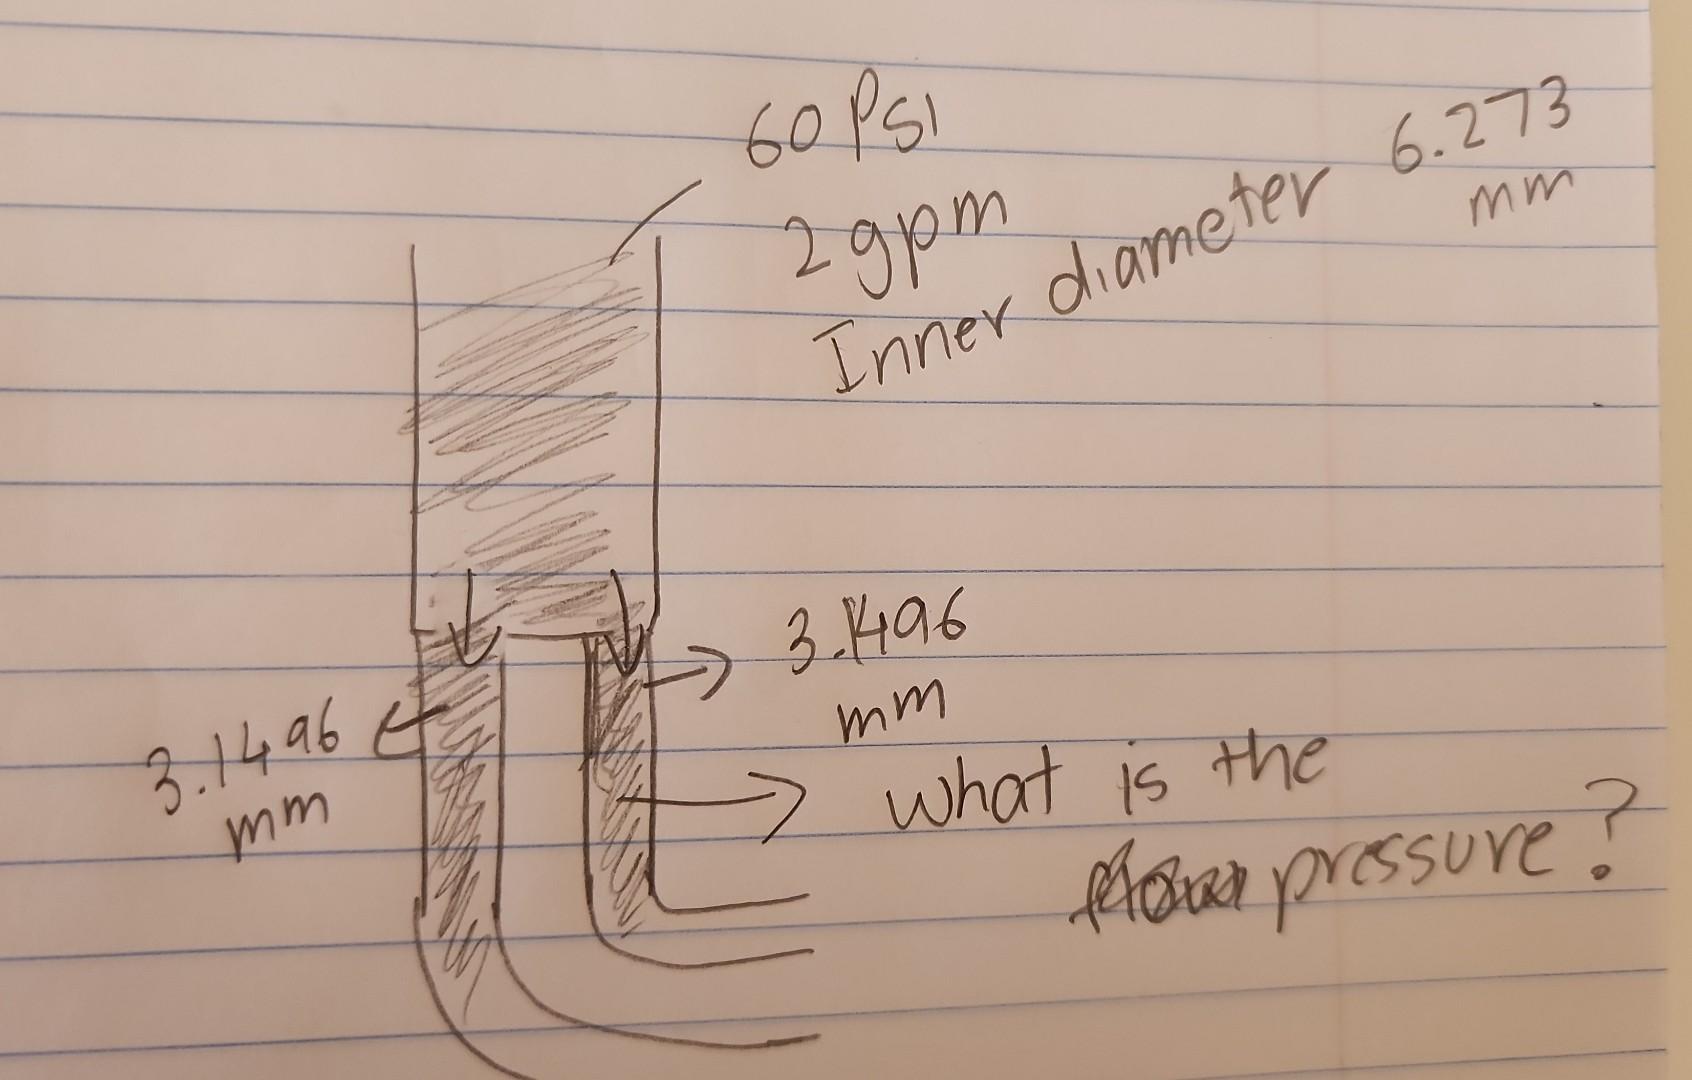 60 Psi
2 gpm
Inner diameter 6.273
mm
3.1496
mm
3.1496
mm
what is the
pressure?